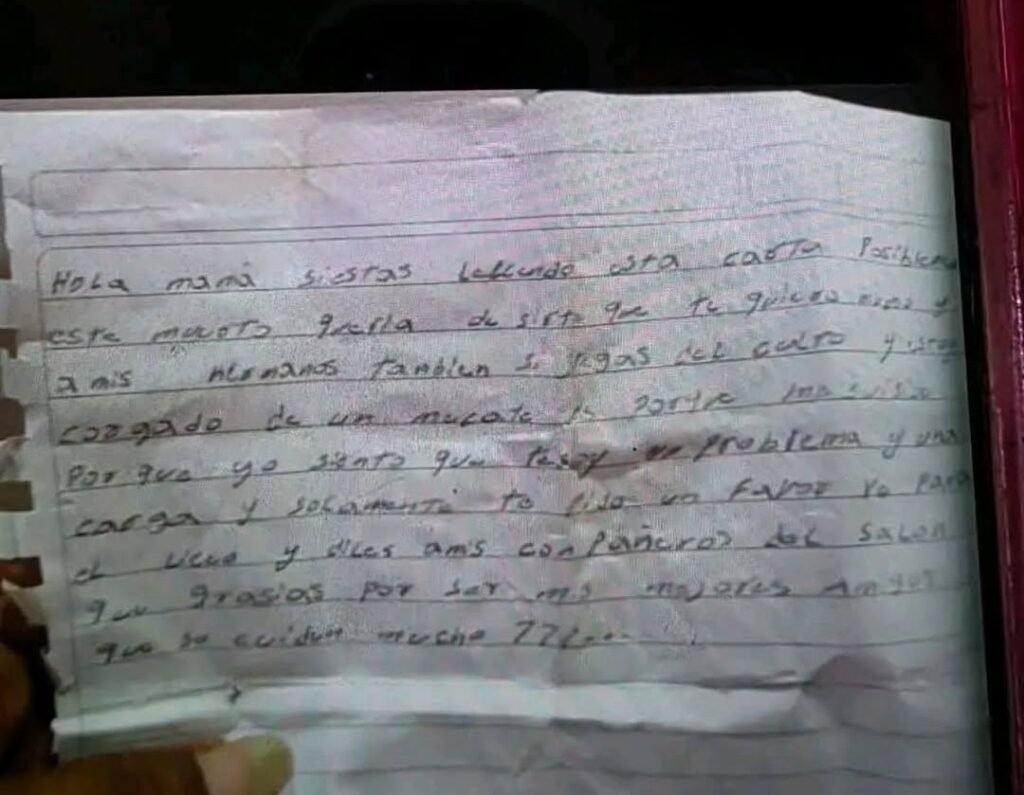 Hola mamá siestas lellendo esta carta Posiblem
este mueoto queria desirte que te quiero mucho y
amis hermanos tanbien si yegas del culto y estoy
corgado de un mecate es
Por que yo siento que problema y una
carga y solamente te pido un Favor ve Para
el liceo y diles amis conpañeros del salon
que grasias por ser mis mejores Amigos
que se cuiden mucho